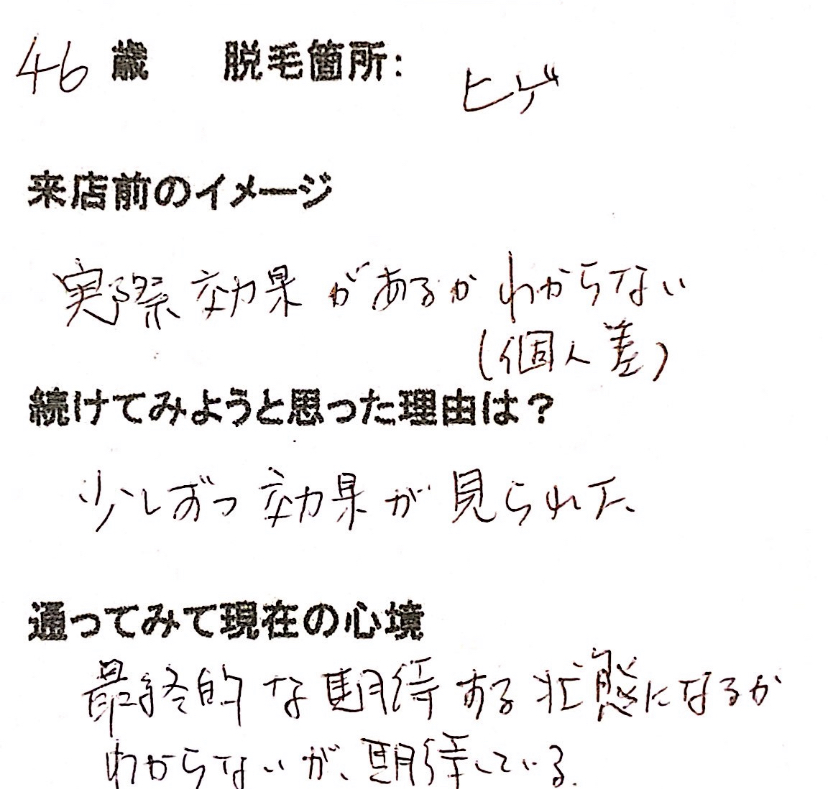 46 歳 脱毛箇所: ヒゲ
来店前のイメージ
実際効果があるかわからない
(個人差)
続けてみようと思った理由は?
少しずつ効果が見られた
通ってみて現在の心境
最終的な期待する状態になるか
わからないが、期待している。